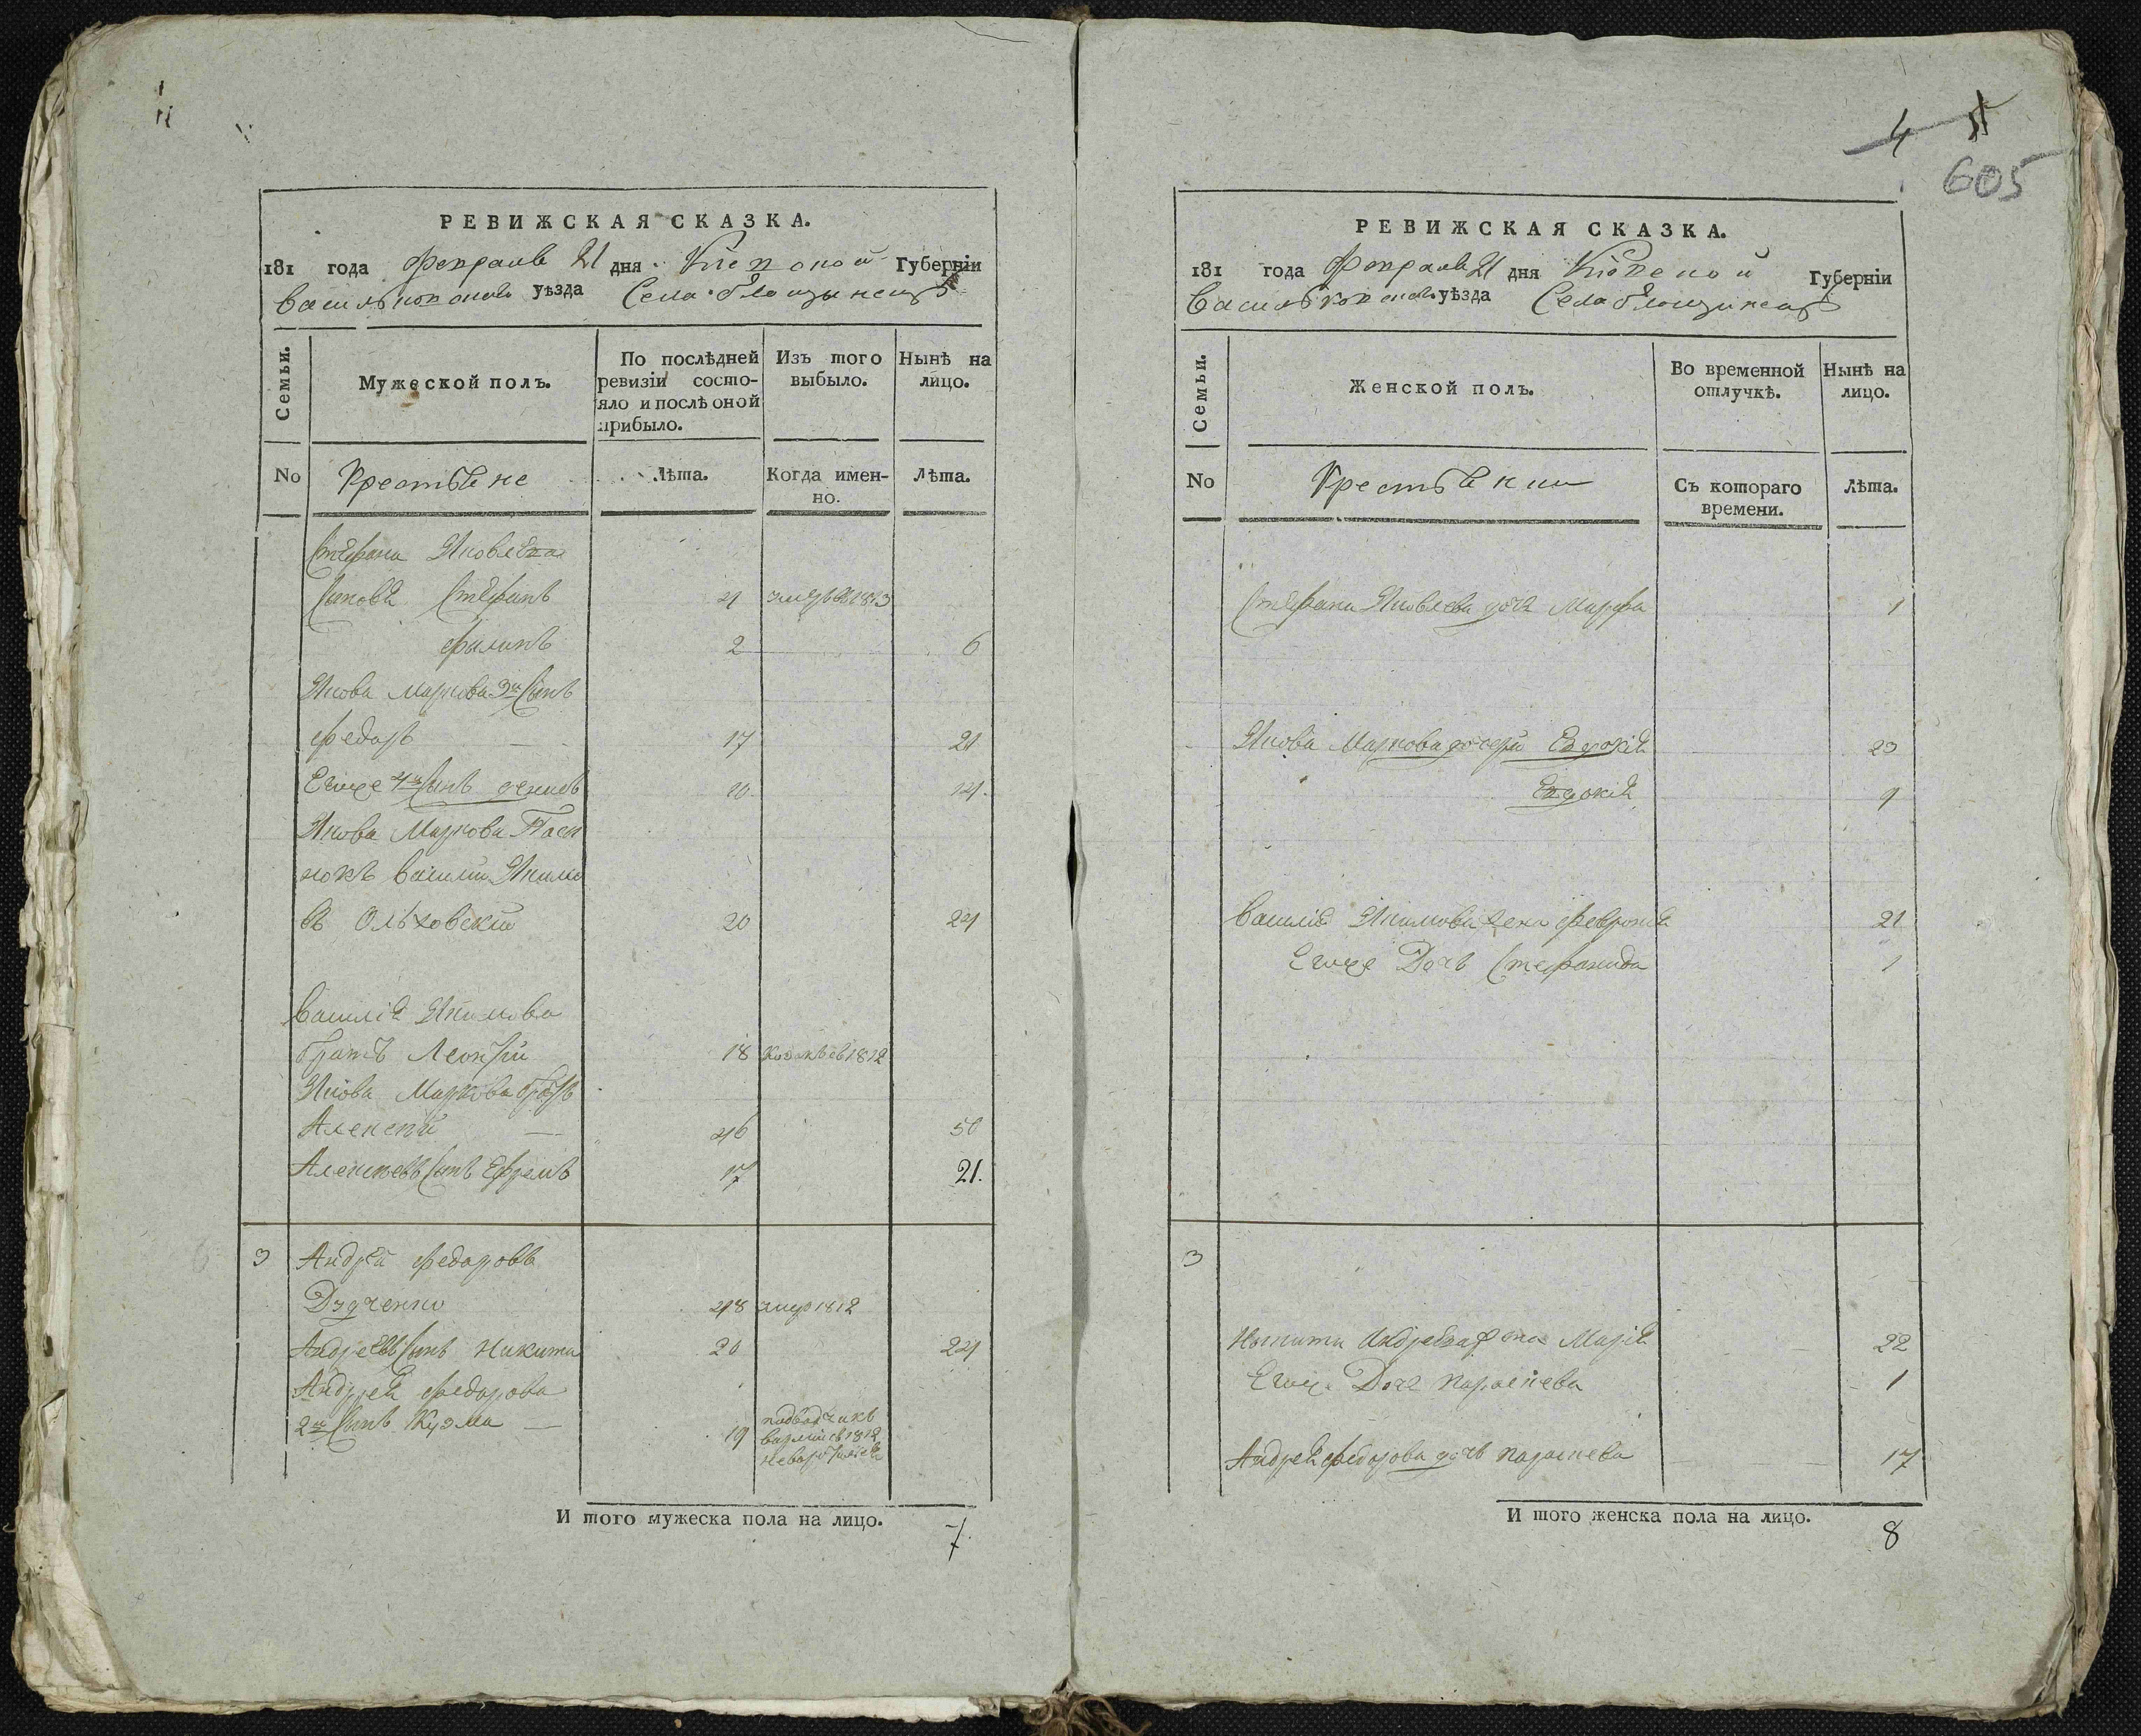 РЕВИЖСКАЯ СКАЗКА.
181 года Февраля 21 дня Киевской Губерніи
Васильковскаго уѣзда Села Блощинецъ
Семьи.
Мужеской полъ.
По послѣдней ревизіи состо-
яло и послѣ оной
прибыло.
Изъ того
выбыло.
Нынѣ на
лицо.
No
Крестьяне
Лѣта.
Когда имен-
но.
Лѣта.
Стефана Яковлева
Синовя Стефанъ 4 1813
Филипъ 2 6
Якова Маркова 3й Синъ
Федоръ 17 21
Егоже 4й Синъ Денисъ 10 14.
Якова Маркова Паси
нокъ Василий Якимо
въ Ольховский 20 24
Василія Якимова
братъ Леонтий 18 1812
Якова Маркова братъ
Алексей 46 50
Алексеевъ Синъ Ефремъ 17 21.
3 Андрей Федоровъ
Дудченко 48 умер 1812
Андреевъ Синъ Никита 20 24
Андрея Федорова
2й Синъ Кузма 19
подводчикъ
в 1812
И того мужеска пола на лицо. 7.
4
605
РЕВИЖСКАЯ СКАЗКА.
181 года Февраля 21 дня Киевской Губерніи
Васильковскаго уѣзда Села Блощинецъ
Семьи.
Женской полъ.
Во временной
отлучкѣ.
Нынѣ на
лицо.
No
Крестьянки
Съ котораго
времени.
Лѣта.
Стефана Яковлева дочь Марфа 1
Якова Маркова дочери Евдокія 23
Евдокія 9
Василія Якимова жена Феврония 21
Егоже Дочь Стефанида 1
3
Никиты Андреева жена Марія 22
Егоже Дочь Параскева 1
Андрея Федорова дочь Параскева 17
И того женска пола на лицо. 8